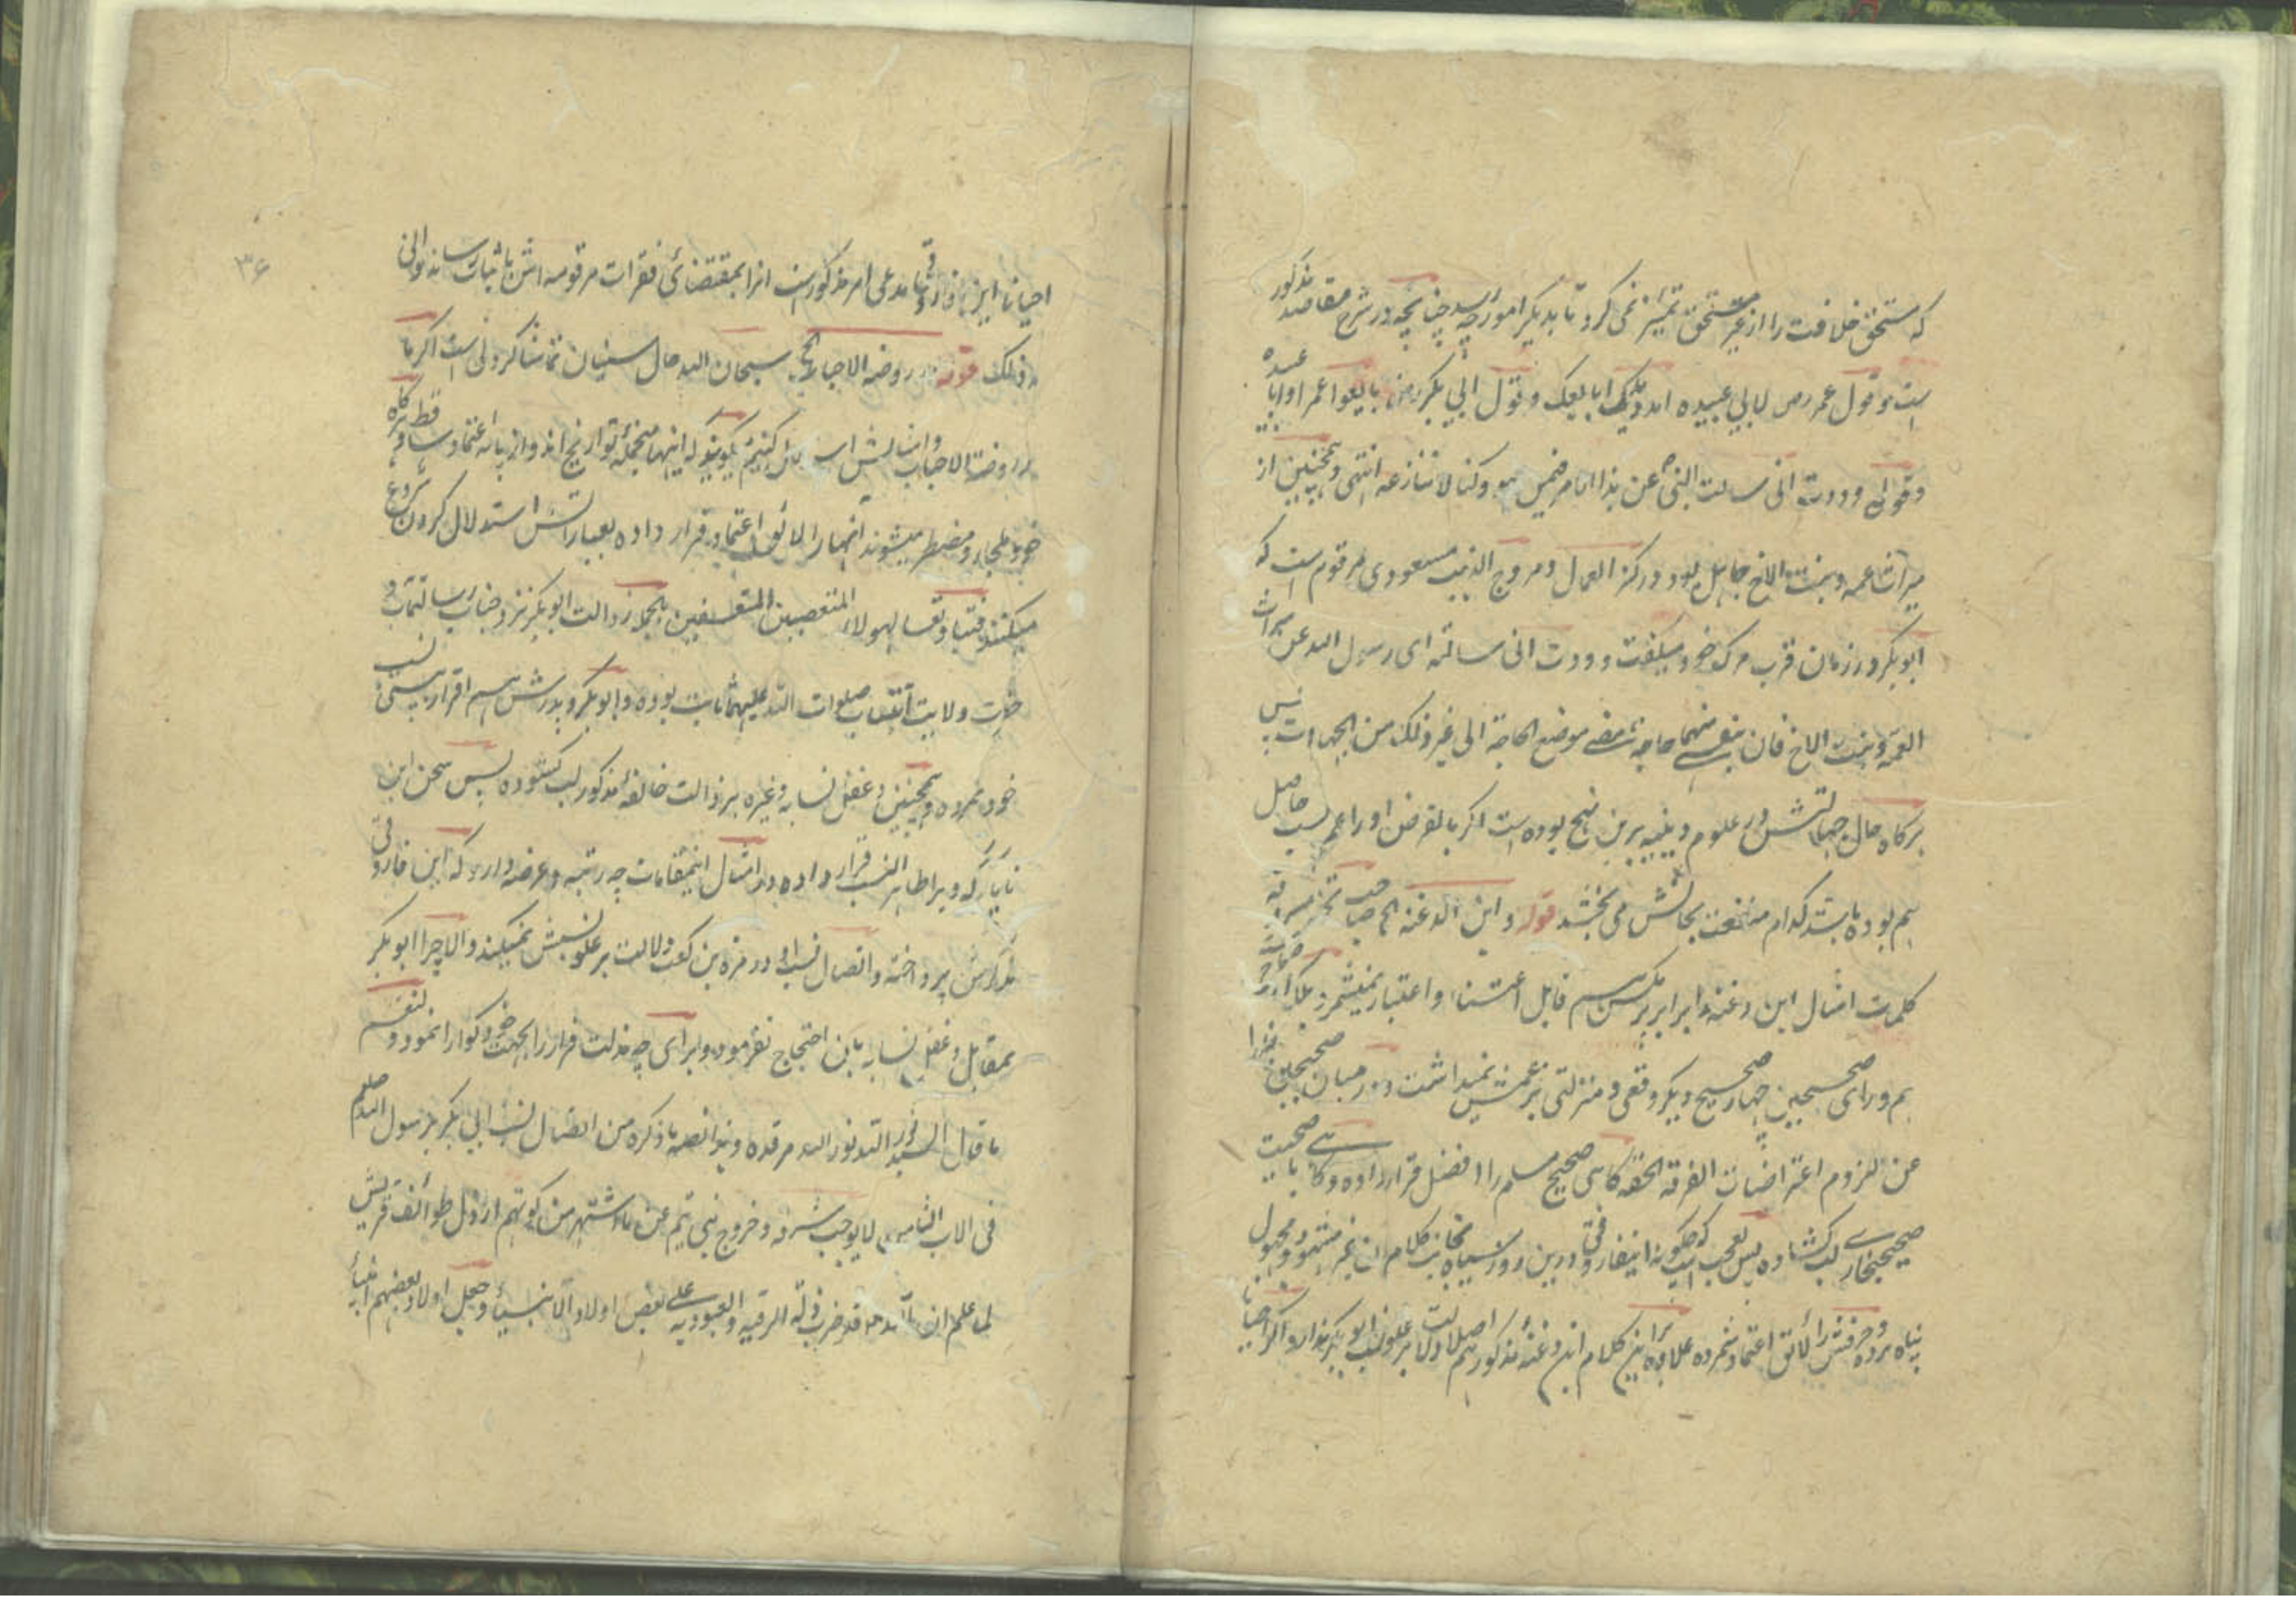 که مستحق خلافت را از غیر مستحق تمیز نمی کرد تا بدیگر امور چه رسد چنانچه در شرح مقاصد مذکور
است و قول عمر رض لابی عبیده امدد یدک ابایعک و قول ابی بکر رض بایعوا عمر او ابا عبیده
و قوله وددت انی سالت النبی ص عن هذا الامر فیمن هو و کنا لا ننازعه انتهی و همچنین از
میراث عمه و بنت الاخ جاهل بود و در کنز العمال و مروج الذهب مسعودی مرقوم است که
ابوبکر در زمان قرب مرگ خود میگفت وددت انی سالته ای رسول الله عن میراث
العمة و بنت الاخ فان بنفسی منهما حاجة مضی موضع الحاجة الی غیر ذلک من الجهالات پس
هرگاه حال جهالتش در علوم دینیه برین نهج بوده است اگر بالفرض او را علم نسب حاصل
هم بوده باشد کدام منفعت بحالش می بخشد قوله و این الدغنه الخ صاحب تحفه
کلمات امثال این دغنه را برابر مگس هم قابل اعتنا و اعتبار نمیشمرد بلکه
هم ورای صحیحین چهار صحیح دیگر وقعی و منزلتی بزعمش نمیداشت و در میان صحیحین
عن لزوم اعتراضات الفرقة الحقه گاهی صحیح مسلم را افضل قرار داده و گاهی باصحیت
صحیح بخاری لب کشاده پس تعجب است که چگونه این فاروقی درین روز سیاه بجانب کلام این غیر مشهور و مجهول
پناه برده و حرفش را لائق اعتماد شمرده علاوه برین کلام ابن دغنه مذکور هم اصلا دلالت بر علو نسب ابوبکر ندارد و اگر احیانا
احیانا این فاروقی مدعی امر مذکور است انرا بمقتضائی فقرات مرقومه اش باثبات رساند و انی
له ذلک قوله در روضة الاحباب الخ سبحان الله حال سنیان تماشا کردنی است اگر ما
از روضة الاحباب و امثالش استدلال کنیم میگویند که اینها منجمله تواریخ اند و از پایه اعتماد ساقط و هرگاه
خود ملجا و مضطر میشوند آنها را لائق اعتماد قرار داده بعباراتش استدلال کردن شروع
میکنند فتبا و تعسا لهولاء المتعصبین المتعسفین بالجمله رذالت ابوبکر نزد جناب رسالتماب و
حضرت ولایت انتساب صلوات الله علیهما ثابت بوده و ابوبکر و پدرش هم اقرار به پستی نسب
خود نموده و همچنین دغفل نسابه و غیره بر رذالت خالفه مذکور لب کشوده پس سخن ابن
ناپاک که ویرا طاهر النسب قرار داده در امثال اینمقامات چه رتبه و عرضه دارد که این فاروقی
بذکرش پرداخته و اتصال نسب او در مره بن کعب دلالت بر علو نسبش نمیکند و الا چرا ابوبکر
بمقابل دغفل نسابه باین احتجاج نفرمود و برای چه مذلت فرار را بجهت خود گوارا نمود و لنعم
ما قال السید نور الله نور الله مرقده و هذا نصه ما ذکره من اتصال نسب ابی بکر برسول الله صلعم
فی الاب الثامن لا یوجب شرفه و خروج بنی تیم عن ما اشتهر من کونهم ارذل طوائف قریش
لما علم ان الله قد ضرب ذلة الرقیه و العبودیه علی بعض اولاد الانبیاء و جعل اولاد بعضهم انبیاء
۳۶